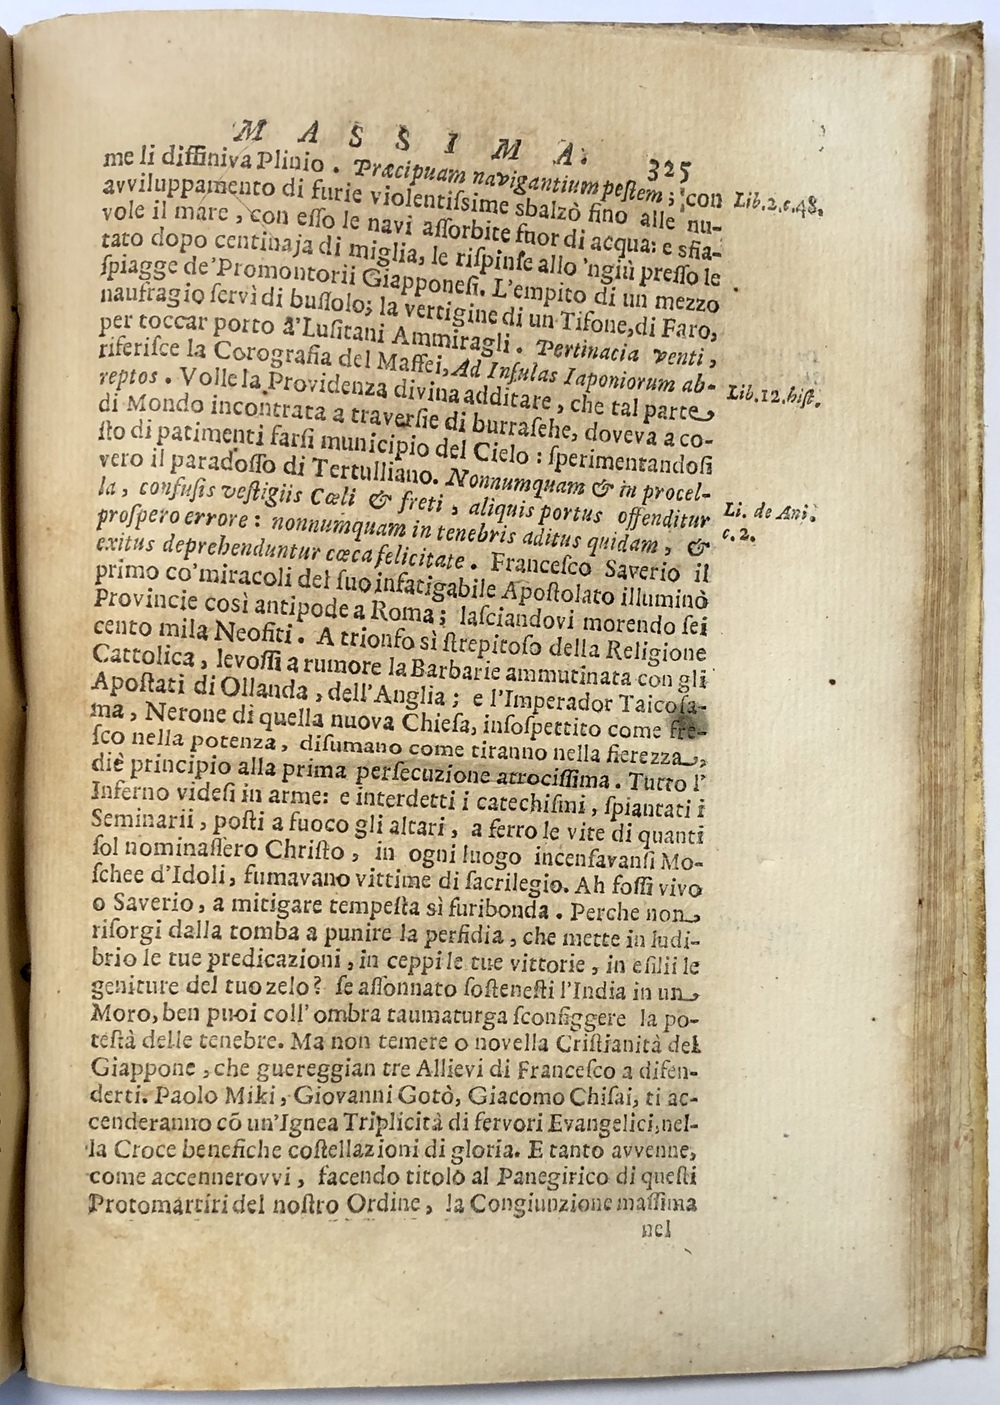 MASSIMA. 325
me li diffiniva Plinio. Præcipuam navigantium peſtem; con Lib.2.c.48.
avviluppamento di furie violentiſsime sbalzò fino alle nu-
vole il mare, con eſſo le navi aſſorbite fuor di acqua: e sfia-
tato dopo centinaja di miglia, le riſpinſe allo 'ngiù preſſo le
ſpiagge de' Promontorii Giapponeſi. L'empito di un mezzo
naufragio ſervì di buſſolo; la vertigine di un Tifone, di Faro,
per toccar porto a' Luſitani Ammiragli. Pertinacia venti,
riferiſce la Corografia del Maffei, Ad Inſulas Iaponiorum ab-
reptos. Volle la Providenza divina additare, che tal parte Lib.12.hiſt.
di Mondo incontrata a traverſie di burraſehe, doveva a co-
ſto di patimenti farſi municipio del Cielo: ſperimentandoſi
vero il paradoſſo di Tertulliano. Nonnumquam & in procel-
la, confuſis veſtigiis Cœli & freti, aliquis portus offenditur Li. de Ani.
proſpero errore: nonnumquam in tenebris aditus quidam, & c.2.
exitus deprehenduntur cœca felicitate. Franceſco Saverio il
primo co' miracoli del ſuo infatigabile Apoſtolato illuminò
Provincie così antipode a Roma; laſciandovi morendo ſei
cento mila Neofiti. A trionfo sì ſtrepitoſo della Religione
Cattolica, levoſſi a rumore la Barbarie ammutinata con gli
Apoſtati di Ollanda, dell'Anglia; e l'Imperador Taicoſa-
ma, Nerone di quella nuova Chieſa, inſoſpettito come fre-
ſco nella potenza, diſumano come tiranno nella fierezza,
diè principio alla prima perſecuzione atrociſſima. Tutto l'
Inferno videſi in arme: e interdetti i catechiſmi, ſpiantati i
Seminarii, poſti a fuoco gli altari, a ferro le vite di quanti
ſol nominaſſero Chriſto, in ogni luogo incenſavanſi Mo-
ſchee d'Idoli, fumavano vittime di ſacrilegio. Ah foſſi vivo
o Saverio, a mitigare tempeſta sì furibonda. Perche non
riſorgi dalla tomba a punire la perfidia, che mette in ludi-
brio le tue predicazioni, in ceppi le tue vittorie, in eſilii le
geniture del tuo zelo? ſe aſſonnato ſoſteneſti l'India in un
Moro, ben puoi coll' ombra taumaturga ſconfiggere la po-
teſtà delle tenebre. Ma non temere o novella Criſtianità del
Giappone, che guereggian tre Allievi di Franceſco a difen-
derti. Paolo Miki, Giovanni Gotò, Giacomo Chiſai, ti ac-
cenderanno cō un'Ignea Triplicità di fervori Evangelici, nel-
la Croce benefiche coſtellazioni di gloria. E tanto avvenne,
come accennerovvi, facendo titolo al Panegirico di queſti
Protomartiri del noſtro Ordine, la Congiunzione maſſima
nel